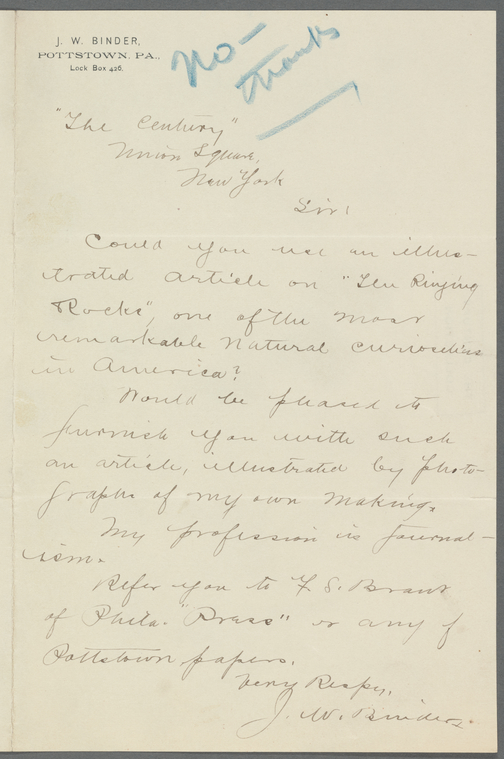 J. W. BINDER,
POTTSTOWN, PA.,
Lock Box 426.
No-
thanks
"The Century"
Union Square,
New York
Sir!
Could you use an illus-
trated article on "The Ringing
Rocks", one of the most
remarkable natural curiosities
in America?
Would be pleased to
furnish you with such
an article, illustrated by photo-
graphs of my own making.
My profession is journal-
ism.
Refer you to F. S. Brant
of Phila. "Press" or any of
Pottstown papers.
Very Respy,
J. W. Binder.